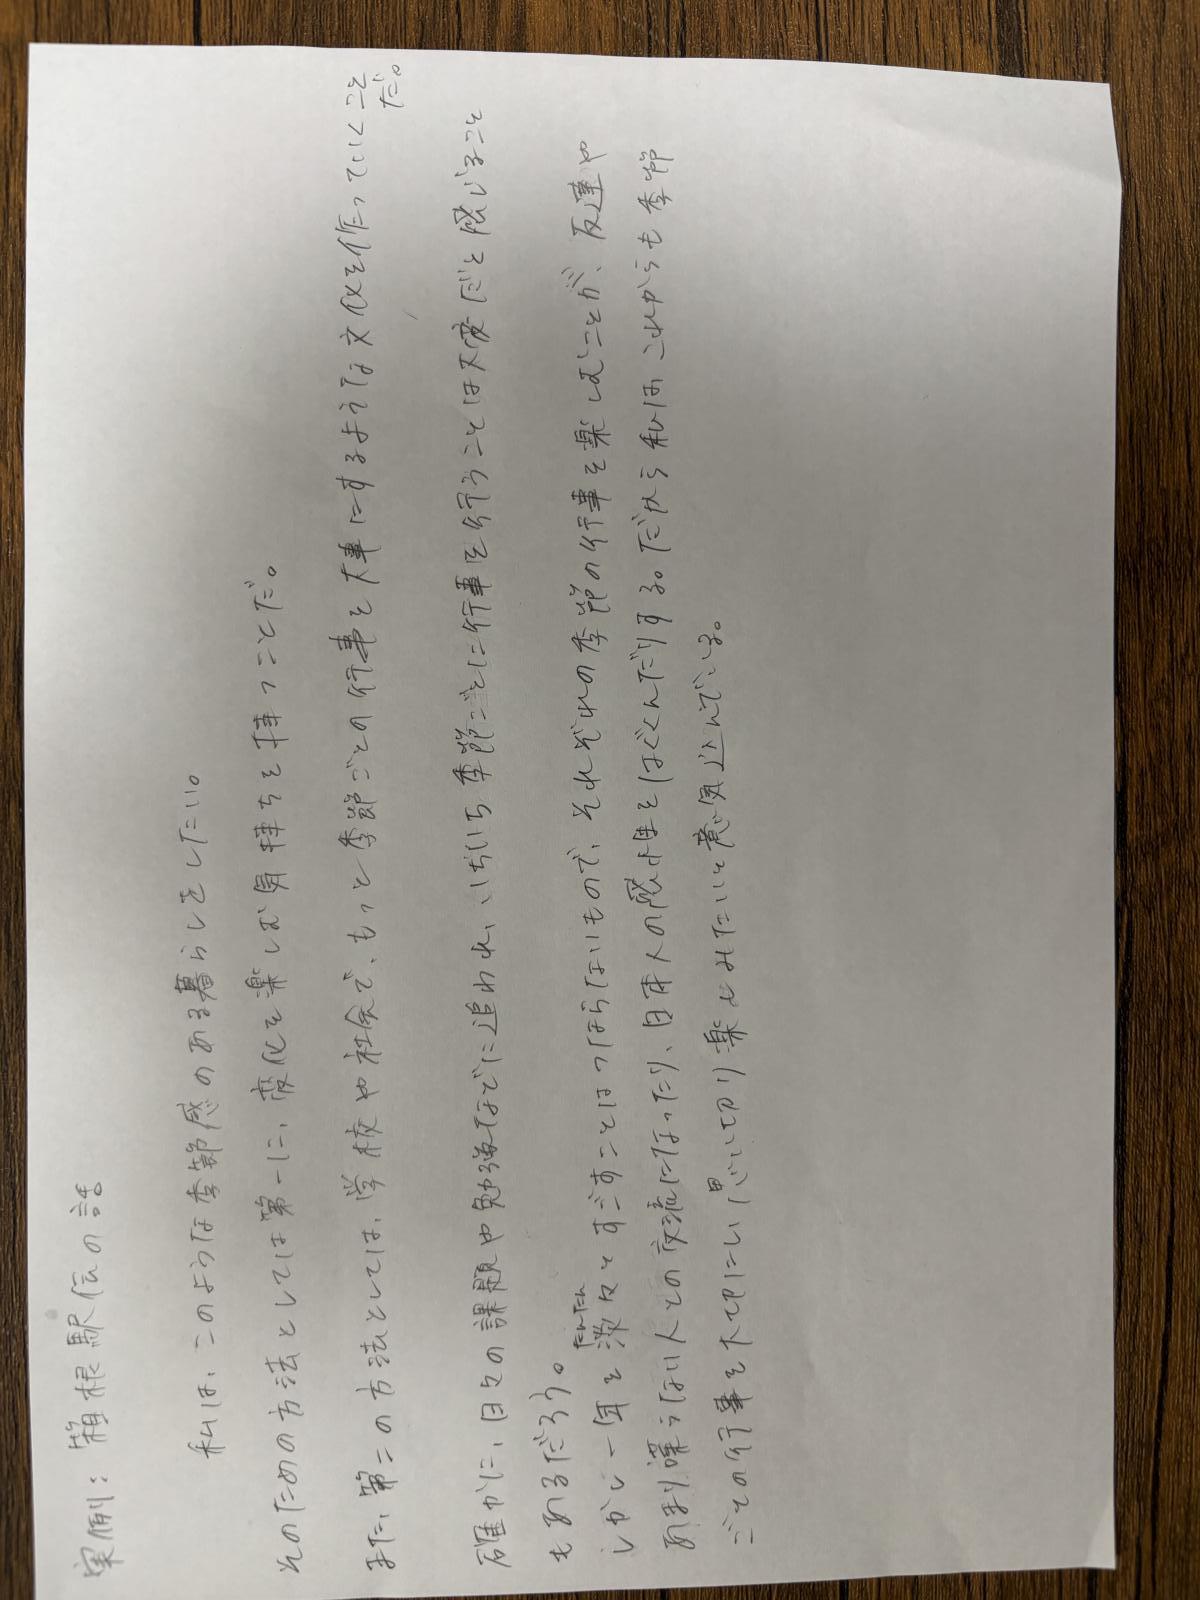 実例：箱根駅伝の話
私は、このような季節感のある暮らしをしたい。
そのための方法としては第一に、変化を楽しむ気持ちを持つことだ。
また、第二の方法としては、学校や社会で、もっと季節ごとの行事を大事にするような文化を作っていくこと
だ。
確かに、日々の課題や勉強などに追われ、いちいち季節ごとに行事を行うことは大変だと感じること
もあるだろう。
たんたん
しかし一年を淡々とすごすことはつまらないもので、それぞれの季節の行事を楽しむことが、友達や
あまり喋らない人との交流になったり、日本人の感性をはぐくんだりする。だから私はこれからも季節
ごとの行事を大切にし、思い切り楽しみたいと意気込んでいる。